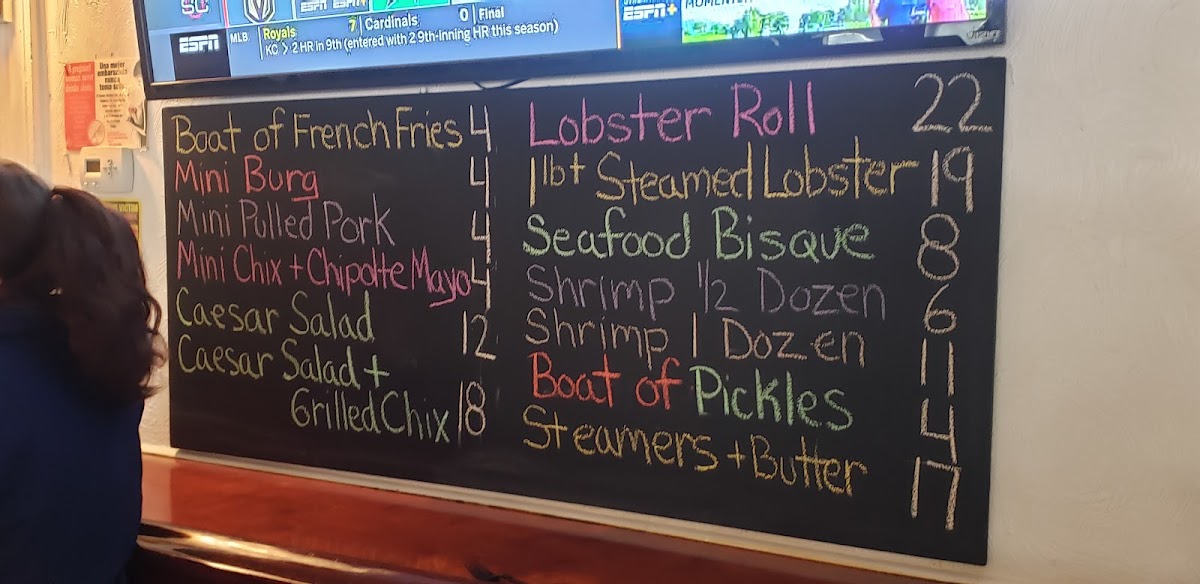 ESPN
ESPN+
ESPN+
MLB
Royals 7 Cardinals 0 Final
KC > 2 HR in 9th (entered with 2 9th-inning HR this season)
Boat of French Fries 4
Mini Burg 4
Mini Pulled Pork 4
Mini Chix + Chipolte Mayo 4
Caesar Salad 12
Caesar Salad +
Grilled Chix 18
Lobster Roll 22
1 lbt Steamed Lobster 19
Seafood Bisque 8
Shrimp 1/2 Dozen 6
Shrimp 1 Dozen 11
Boat of Pickles 4
Steamers + Butter 17